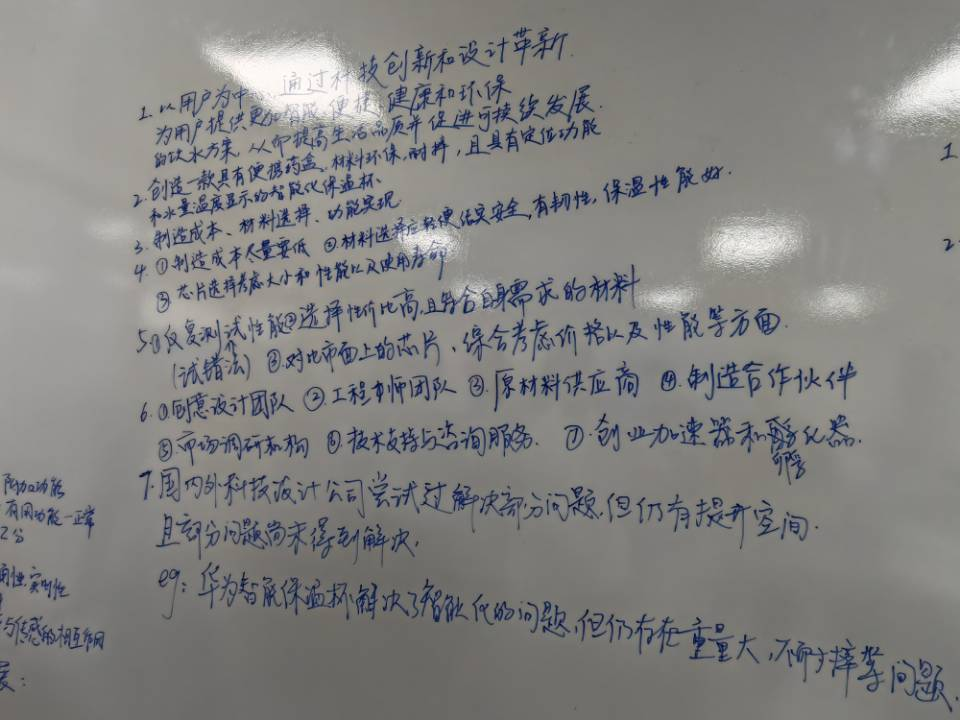 1. 以用户为中心,通过科技创新和设计革新
为用户提供更加智能、便捷、健康和环保
的饮水方案,从而提高生活品质并促进可持续发展.
2. 创造一款具有便携药盒、材料环保、耐摔,且具有定位功能
和水量温度显示的智能化保温杯、
3. 制造成本、材料选择、功能实现
4. ①制造成本尽量要低 ②材料选择应轻便结实安全,有韧性,保温性能好.
③ 芯片选择考虑大小和性能以及使用寿命
5.①反复测试性能②选择性价比高,且符合自身需求的材料
(试错法) ③.对比市面上的芯片、综合考虑价格以及性能等方面.
6.①.创意设计团队 ②.工程师团队 ③.原材料供应商 ④.制造合作伙伴
⑤.市场调研机构 ⑥.技术支持与咨询服务. ⑦.创业加速器和孵化器.
7.国内外科技设计公司尝试过解决部分问题,但仍有提升空间.
且部分问题尚未得到解决.
eg:华为智能保温杯解决了智能化的问题,但仍存在重量大,不耐摔等问题.
附加功能
有用功能-正常
实用性
与传感的相互作用
度:
1
2